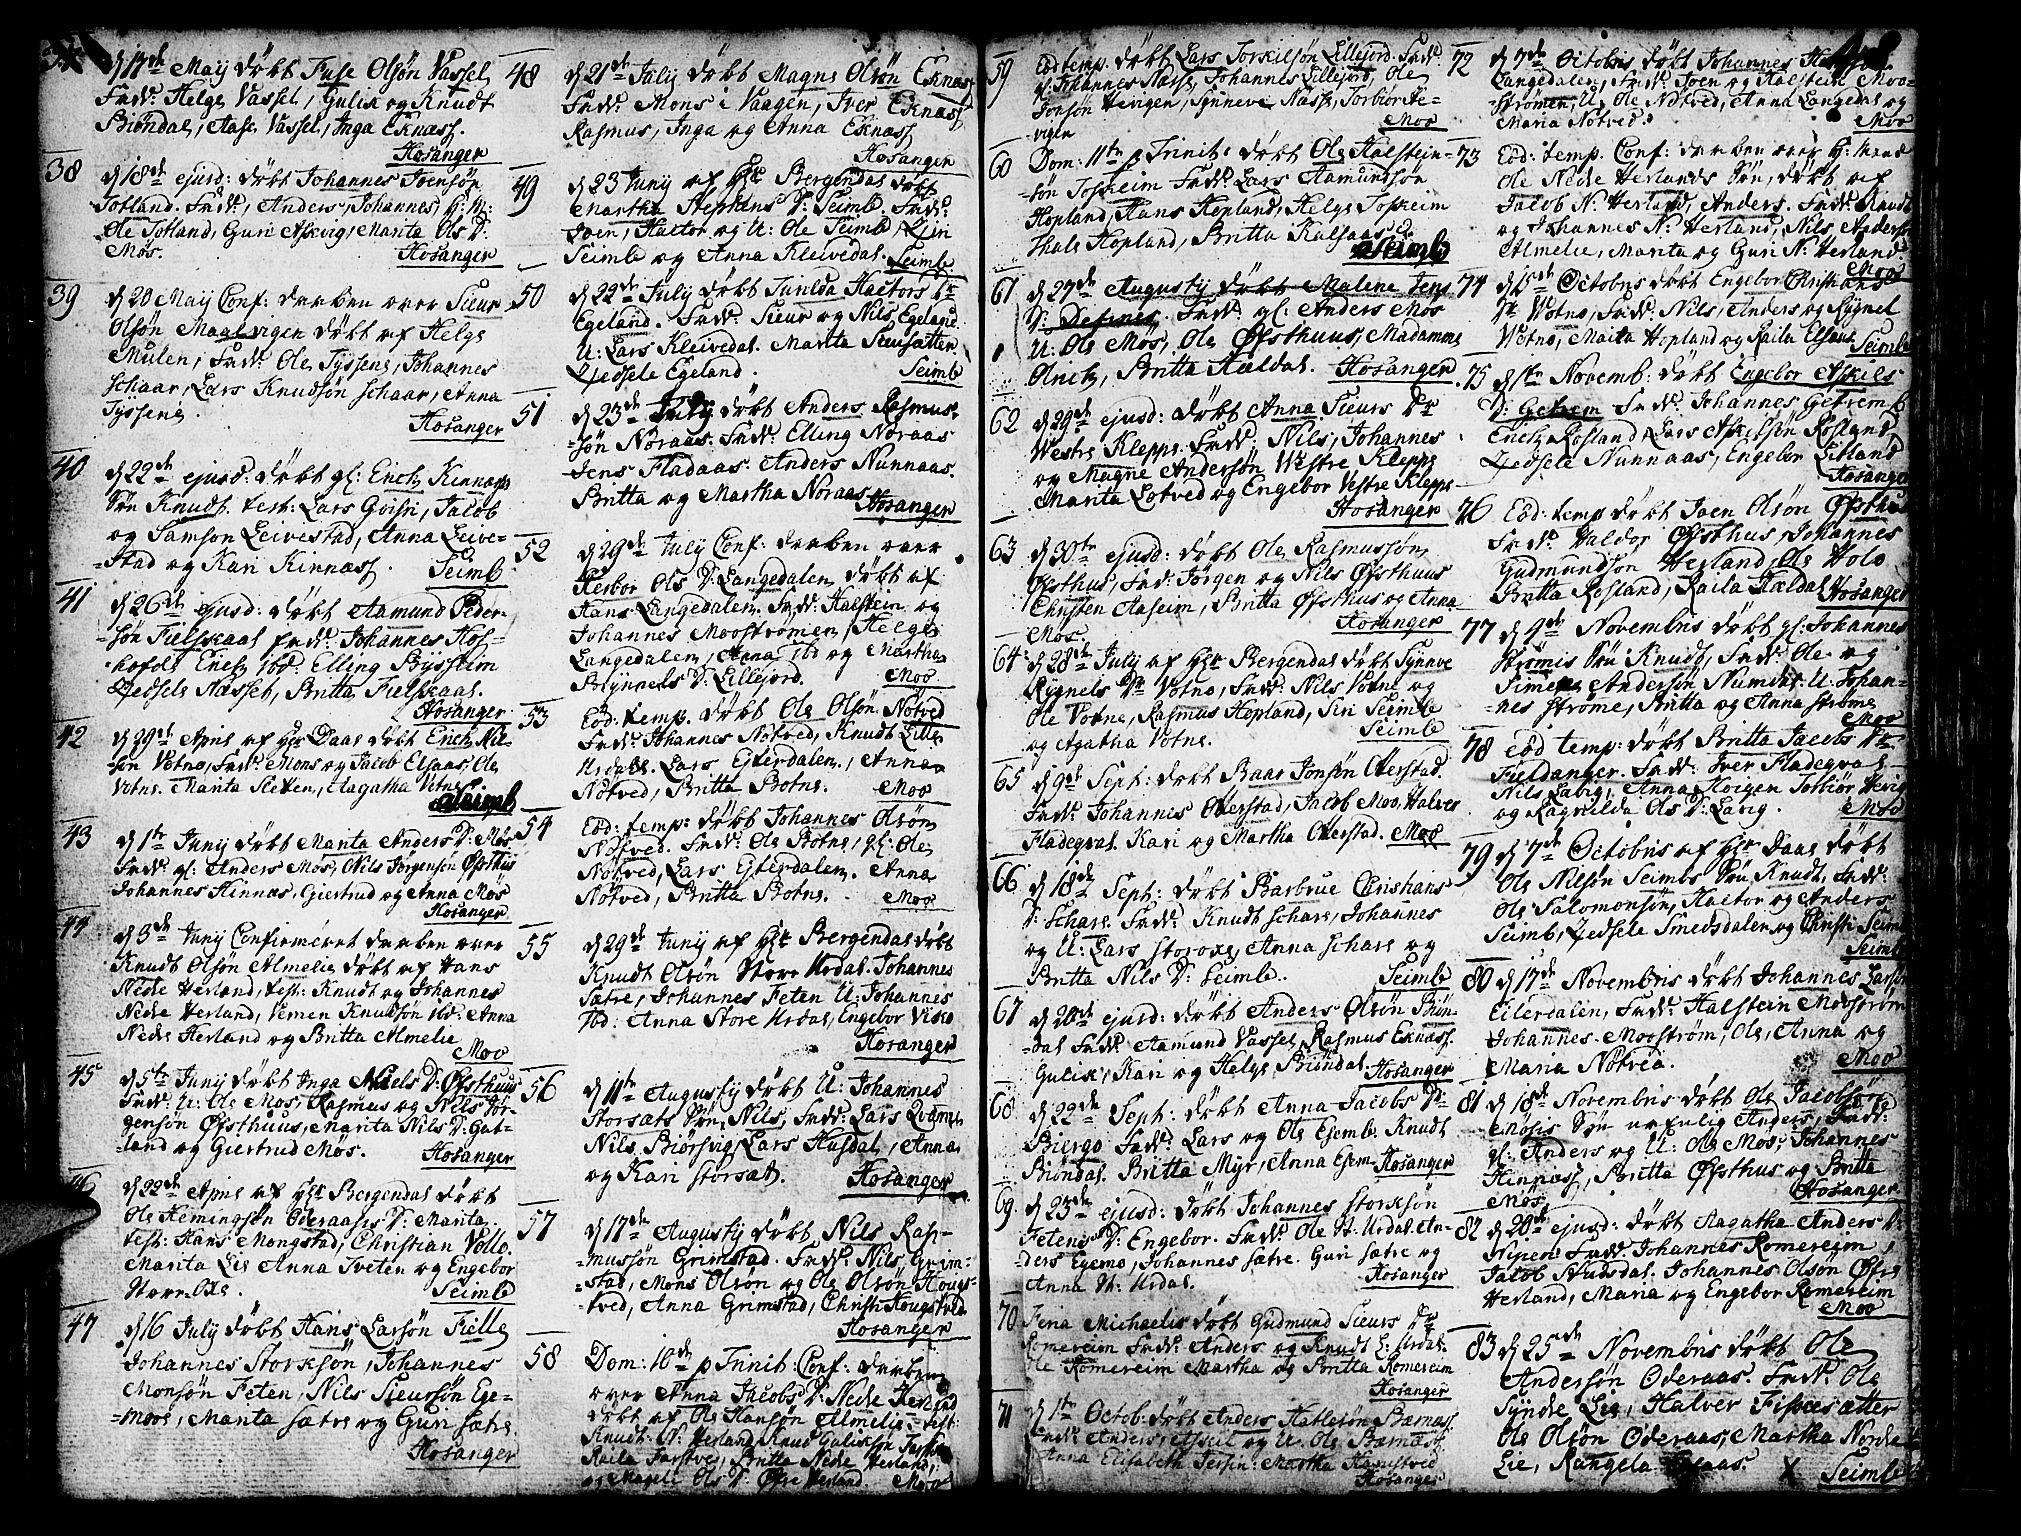 d 17de Maij døbt Fuse Olsøn Vassel
Fadd: Helge Vassel, Gulik og Knudt
Biøndal, Aase Vassel, Inga Eknæss.
Hosanger
38
d 18de ejusd: døbt Johannes Ivensøn
Totland. Fadd:, Anders, Johannes,
Ole Totland, Guri Askvig, Marita Ols D:
Møs.
Hosanger
39
d 20 Maij Conf: daaben over Siur
Olsøn Maalvigen døbt af Helge
Mulen, Fadd: Ole Tyssens, Johannes
Schaar, Lars Knudsøn Schaar, Anna
Tyssens.
Hosanger
40
d 22de ejusd: døbt gl: Erich Kinnæss
Søn Knudt. test: Lars Jacob
og Samson Leivestad, Anna Leive-
=stad og Kari Kinnæss.
Seimb
41
d 26de ejusd: døbt Aamund Peder-
søn Fielskaal Fadd: Johannes Hos-
=hofde Erich ibd: Elling Byssheim
Zedsele Næsset, Britta Fielskaal.
Hosanger
42
d 29de April af Hr Daae døbt Erich Nil-
søn Votno, Fadd: Mons og Jacob Elsaas, Ole
Votne. Marita Sletten, Aagatha Votne
Seimb
43
d 1te Junij døbt Marita Anders D: Møs
Fadd: gl: Anders Møs, Nils Jørgensøn Øfsthus
Johannes Hinnæs, Giertrud og Anna Møs
Hosanger
44
d 3de Junij Confirmeret daaben over
Knudt Olsøn Almelie døbt af Hans
Nedre Herland, test: Knudt og Johannes
Nedre Herland, Vemen Knudsøn ibd: Anna
Nedre Herland og Britta Almelie
Moo
45
d 5te Junij døbt Inga Niels D: Øfsthuus
Fadd: U: Ole Mos, Rasmus og Nils Jør-
gensøn Øfsthuus, Marita Nils D: Gat-
land og Giertrud Møs.
Hosanger
46
d 22de April af Hr Bergendal døbt
Ole Hemingsøn Oderaases D: Marita.
test: Hans Mongstad, Christian Vollo.
Marita Lie Anna Tveten og Engebor
Seimb
47
d 16 Julij døbt Hans Larsøn Fielle
Johannes Storksøn, Johannes
Monsøn Feten, Nils Sieursøn Ege-
=moe, Marita Sætre og Guri Sætre
Hosanger
48
d 21de Julij døbt Magne Olsøn Eknæss
Fadd: Mons i Vaagen, Iver Eknæss
Rasmus, Inga og Anna Eknæss
Hosanger
49
d 23 Junij af Hr Bergendal døbt
Martha Stephens D: Seimb, Fadd:
Joen, Hactor og U: Ole Seimb, Siri
Seimb og Anna Kleivedal. Seimb
50
d 22de Julij døbt Gunilda Hactors Dr
Egeland. Fadd: Sieur og Nils Egeland
U: Lars Kleivedal. Marita
Zedsele Egeland.
Seimb
51
d 23de Julij døbt Anders Rasmus-
=søn Noraas. Fadd: Elling Noraas
Jens Fladaas. Anders Nunnaas.
Britta og Martha Noraas
Hosanger
52
d 29de Julij Conf: daaben over
Herbor Ols D: Langedalen døbt af
Hans Langedalen. Fadd: Halstein og
Johannes Mostrømen, Helge
Langedalen, Anna ibd og Martha
Brynnels D: Lillejord.
Moo
53
Eod: temp. døbt Ole Olsøn Nøtved
Fadd: Johannes Nøtved, Knudt Lille
Urdal. Lars Eiterdalen, Anna
Nøtved, Britta Botne.
Moo
54
Eod: temp: døbt Johannes Olsøn
Nøtved. Fadd: Ole Botne, gl: Ole
Nøtved, Lars Eiterdalen. Anna
Nøtved, Britta Botne.
Moo
55
d 29de Junij af Hr Bergendal døbt
Knudt Olsøn Store Urdal. Johannes
Sætre, Johannes Feten U: Johannes
ibd: Anna Store Urdal, Engebor
Hosanger
56
d 11te Augustij døbt U: Johannes
Storsæts Søn, Nils, Fadd: Lars
Nils Biørsvig, Lars Husdal, Anna
og Kari Storsæt.
Hosanger
57
d 17de Augustij døbt Nils Ras-
=mussøn Grimstad. Fadd: Nils Grim-
=stad, Mons Olsøn og Ole Olsøn Hougs-
=tved, Anna Grimstad, Christi Hougstved
Hosanger
58
Dom: 10de p Trinit: Conf: daaben
over Anna Jacobs D: Nedre Herland
døbt af Ole Hansøn Almelie. test:
Knudt N: Herland Knud Gulliksøn
Raila Farstve, Britta Nedre Herland,
og Magele Ols D: Øfre Herland.
Moo
59
Eod temp. døbt Lars Torkilsøn Lillejord. Fadd:
gl: Johannes Næss, Johannes Lillejord, Ole
Jonsøn Hevigen, Synneve Næss, Torbiør He-
vigen
Moo
60
Dom: 11te p Trinit: døbt Ole Halstein-
=søn Toskeim Fadd: Lars Aamundsøn
Hopland, Hans Hopland, Helge Toskeim
Hopland, Britta Kalsaas.
Seimb
61
d 27de Augustij døbt Malene Jens
D: Fadd: gl: Anders Mos
U: Ole Møs, Ole Øfsthuus, Madamme
Britta Hældal.
Hosanger
62
d 29de ejusd: døbt Anna Sieurs Dr
Westre Kleppe. Fadd: Nils, Johannes
og Magne Andersøn Westre Kleppe
Marita Lotved og Engebor Vestre Kleppe
Hosanger
63
d 30te ejusd: døbt Ole Rasmussøn
Øfsthus, Fad: Jørgen og Nils Øfsthuus
Christen Aaseim, Britta Øfsthus og Anna
Møs.
Hosanger
64
d 28de Julij af Hr Bergendal døbt Synneve
Rygnels Dr Votno, Fadd: Nils Votne og
Ole Votne, Rasmus Hopland, Siri Seimb
og Agatha Votne.
Seimb
65
d 9de Sept: døbt Baar Jonsøn Okerstad.
Fadd: Johannes Okerstad, Jacob Moo, Halvor
Fladeqval. Kari og Martha Okerstad. Moo
66
d 18de Sept: døbt Barbrue Christians
D: Schare. Fadd: Knudt Schare, Johannes
og U: Lars Storoxe, Anna Schare og
Britta Nils D: Seimb.
Seimb
67
d 20de ejusd: døbt Anders Olsøn Biøn-
dal Fadd: Aamund Vassel, Rasmus Eknæss.
Gulik, Kari og Helge Biøndal
Hosanger
68
d 22de Sept: døbt Anna Jacobs D:
Bierge Fadd: Lars og Ole Esemb. Knudt
Biøndal. Britta Myr, Anna Esem. Hosanger
69
d 23de ejusd: døbt Johannes Storksøn
Fetens D: Engebor. Fadd: Ole St: Urdal. An-
ders Egemo, Johannes Sætre. Guri Sætre og
Anna St: Urdal.
Hosanger
70
Feria Michaelis døbt Gudmund Sieurs Dr
Romereim Fadd: Anders og Knudt L: Urdal.
Ole Romereim Martha og Britta Romereim
Hosanger
71
d 1te Octob. døbt Anders Hatlesøn Bærnæss.
Fadd: Anders, Askil og U. Ole Bærnæss
Anna Elisabeth Martha Hamstved
Hosanger
72
d 7de Octobris døbt Johannes
Langedalen, Fadd: Joen og Halstein Moo-
=strømen, U: Ole Nøtved, Anna Langedal og
Maria Nøtved.
Moo
73
Eod: temp. Conf: daaben over
Ole Nedre Herlands Søn, døbt af
Jacob N: Herland, Anders. Fadd: Knudt
og Johannes N: Herland, Nils Anders
Almelie, Marita og Guri N: Herland.
Moo
74
d 15de Octobris døbt Engebor Christians
Dr Votno, Fadd: Nils, Anders og Rygnel
Votno, Marita Hopland og Raila Elsaas
Seimb
75
d 1te Novemb: døbt Engebor Askils
D: Getrem Fadd: Johannes Getremb
Erich Rosland, Lars Askilsøn Rosland
Zedsele Nunnaas, Engebor Litland
Hosanger
76
Eod: temp døbt Joen Olsøn Øfsthus
Fadd: Haldor Øfsthus, Johannes
Gudmundsøn Herland, Ole Holo
Britta Rosland, Raila Hældal Hosanger
77
d 9de Novembris døbt gl: Johannes
Strømes Søn Knudt, Fadd: Ole og
Simen Andersøn U: Johan-
=nes Strøme, Britta og Anna Strøme
Moo
78
Eod temp: døbt Britta Jacobs Dr
Fieldanger. Fadd: Iver Fladeqval
Nils Labig, Anna Torbiør Hevig
og Ragnilda Ols D: Lavig.
Moo
79
d 7de Octobris af Hr Daae døbt
Ole Nilsøn Seimbs Søn Knudt, Fadd:
Ole Salomonsøn, Hactor og Anders
Seimb, Zedsele Smedsdalen og Christi Seimb
Seimb
80
d 17de Novembris døbt Johannes Larsøn
Eiterdalen, Fadd: Halstein Moostrøm
Johannes Moostrøm, Ole, Anna og
Maria Nøtved.
Moo
81
d 18de Novembris døbt Ole Jacobsøn
Mosis Søn Anders, Fadd:
gl: Anders og U: Ole Møs, Johannes
Hinnæss, Britta Øfsthus og Britta
Møs
Hosanger
82
d 20de ejusd: døbt Aagatha Anders D:
Nipen Fadd: Johannes Romereim
Jacob Husdal. Johannes Olsøn Øfre
Herland, Maria og Engebor Romereim
Moo
83
d 25de Novembris døbt Ole
Andersøn Oderaas. Fadd: Ole
Syndre Lie, Halver Fiskesætter
Ole Olsøn Oderaas, Martha Nordre
Lie, Rangela
X Seimb